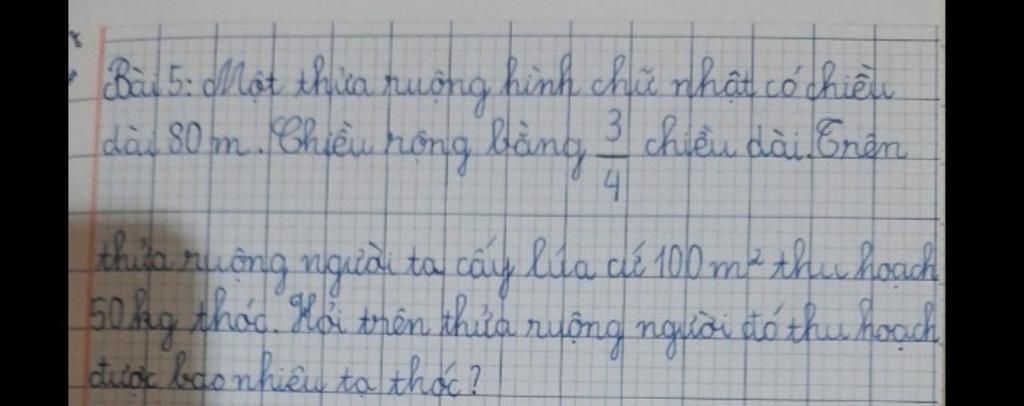 Bài 5: Một thửa ruộng hình chữ nhật có chiều
dài 80 m. Chiều rộng bằng 3/4 chiều dài. Trên
thửa ruộng người ta cấy lúa cứ 100 m² thu hoạch
50 kg thóc. Hỏi trên thửa ruộng người đó thu hoạch
được bao nhiêu tạ thóc?